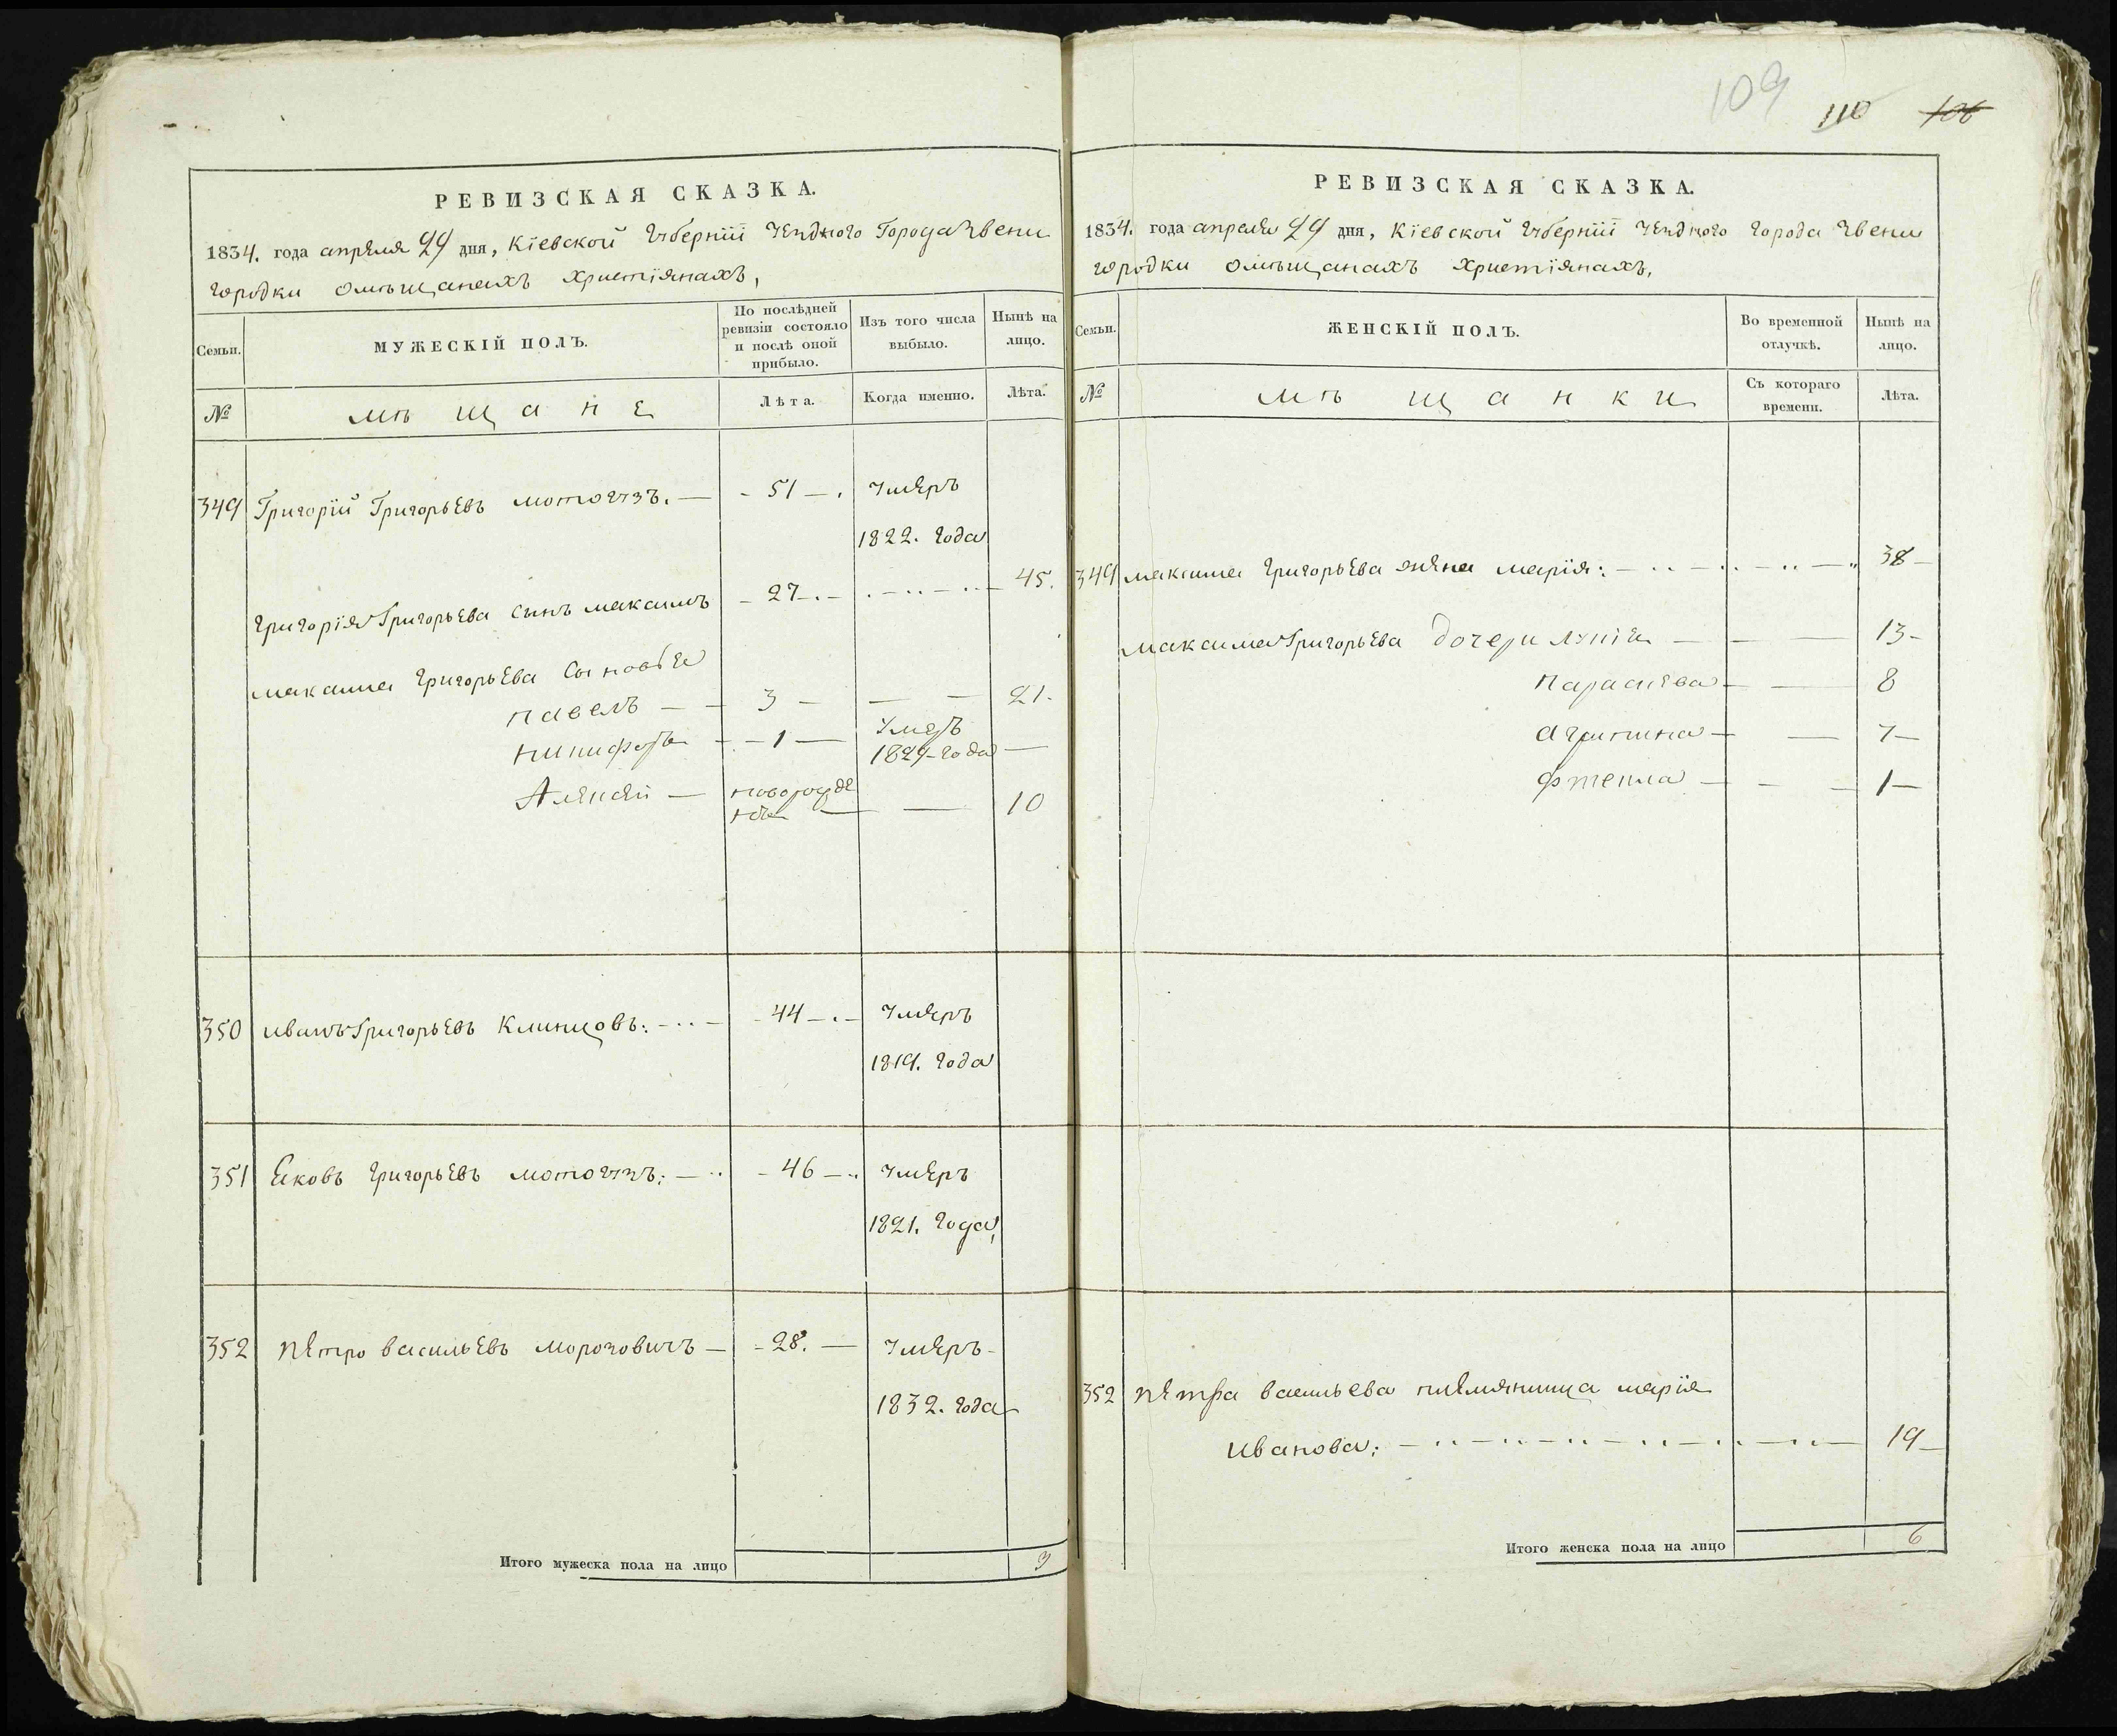 109
110 106
РЕВИЗСКАЯ СКАЗКА.
1834. года апреля 29 дня, Кіевской Губерніи Уезднаго Города Звени
городки омѣщанахъ христіянахъ,
Семьи.
МУЖЕСКІЙ ПОЛЪ.
По послѣдней ревизіи состояло и послѣ оной прибыло.
Изъ того числа выбыло.
Нынѣ на лицо.
№
мѣщане
Лѣта.
Когда именно.
Лѣта.
349 Григорій Григорьевъ мотогузъ. — 51 — умеръ
1822. года
Григорія Григорьева сынъ максимъ — 27 — 45.
максима Григорьева сыновья
павелъ — 3 — 21.
никифоръ — 1 — умеръ
1829 года —
Алексей — новорожде
нъ — 10
350 иванъ Григорьевъ Клинцовъ: — 44 — умеръ
1819. года
351 Яковъ Григорьевъ мотогузъ: — 46 — умеръ
1821. года,
352 петро васильевъ морозовичъ — 28. — умеръ
1832. года
Итого мужеска пола на лицо 3
РЕВИЗСКАЯ СКАЗКА.
1834. года апреля 29 дня, Кіевской Губерніи Уезднаго города Звени
городки омѣщанахъ христіянахъ,
Семьи.
ЖЕНСКІЙ ПОЛЪ.
Во временной отлучкѣ.
Нынѣ на лицо.
№
мѣщанки
Съ котораго времени.
Лѣта.
349 максима григорьева жена марія: — 38 —
максима Григорьева дочери — 13 —
параскева — 8
агрипина — 7 —
— 1 —
352 петра васильева племяница марія
иванова: — 19 —
Итого женска пола на лицо 6